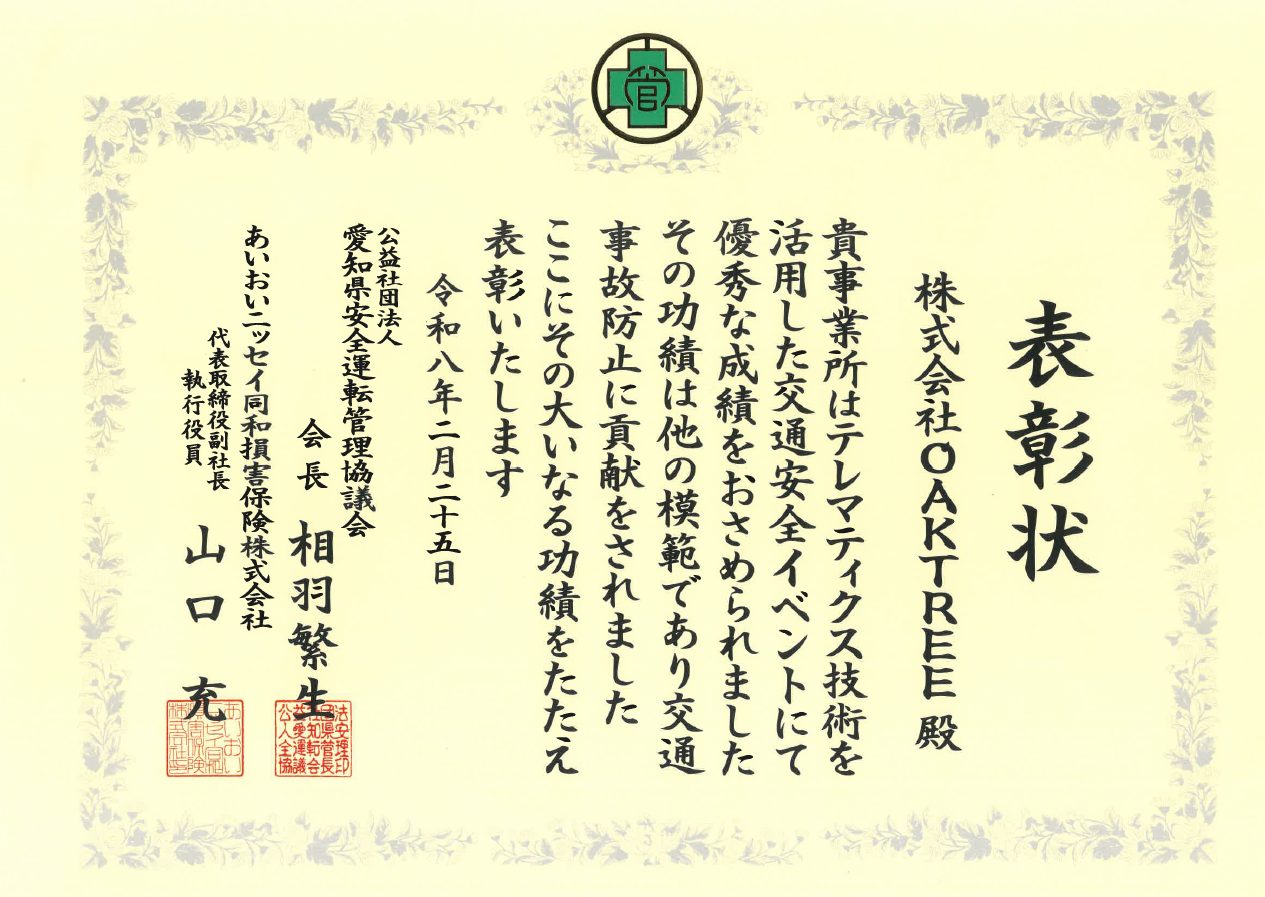 表彰状
株式会社OAKTREE 殿
貴事業所はテレマティクス技術を
活用した交通安全イベントにて
優秀な成績をおさめられました
その功績は他の模範であり交通
事故防止に貢献をされました
ここにその大いなる功績をたたえ
表彰いたします
令和八年二月二十五日
公益社団法人
愛知県安全運転管理協議会
会長 相羽繁生
あいおいニッセイ同和損害保険株式会社
代表取締役副社長
執行役員 山口 充